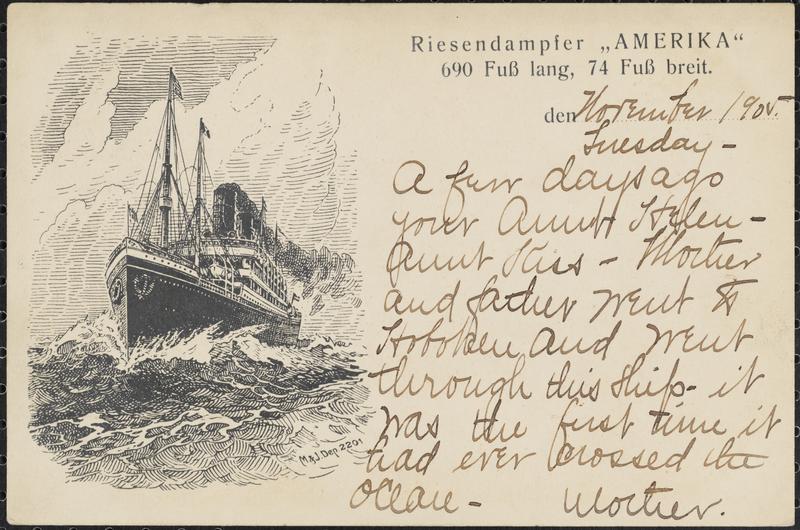 Riesendampfer „AMERIKA“
690 Fuß lang, 74 Fuß breit.
den November 1905.
Tuesday -
A few days ago
your Aunt Helen -
Aunt Kiss - Mother
and father went to
Hoboken and went
through this ship - it
was the first time it
had ever crossed the
Ocean - Mother.
M.&J. Dep. 2201